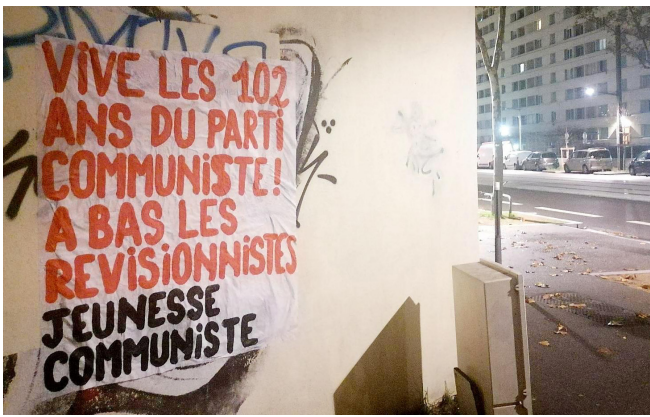 VIVE LES 102
ANS DU PARTI
COMMUNISTE!
A BAS LES
REVISIONNISTES
JEUNESSE
COMMUNISTE